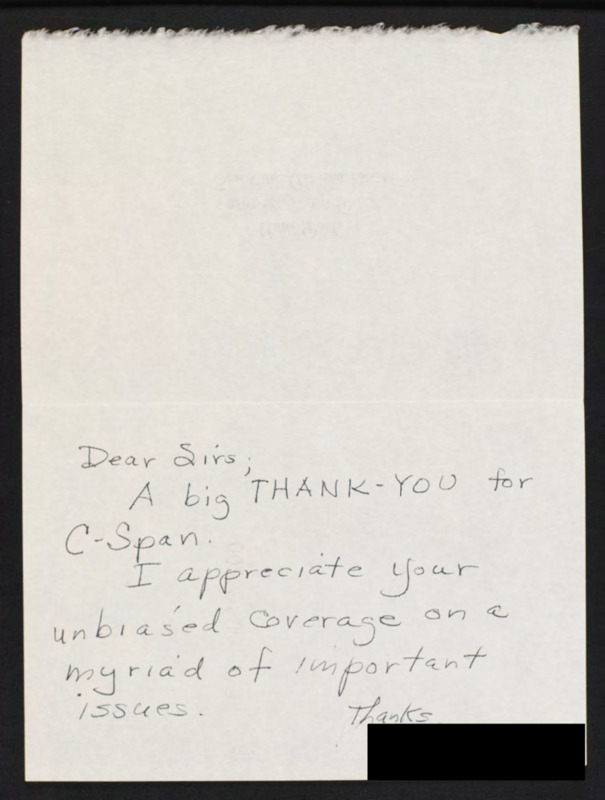 Dear Sirs;
A big THANK-YOU for
C-Span.
I appreciate your
unbiased coverage on a
myriad of important
issues.
Thanks